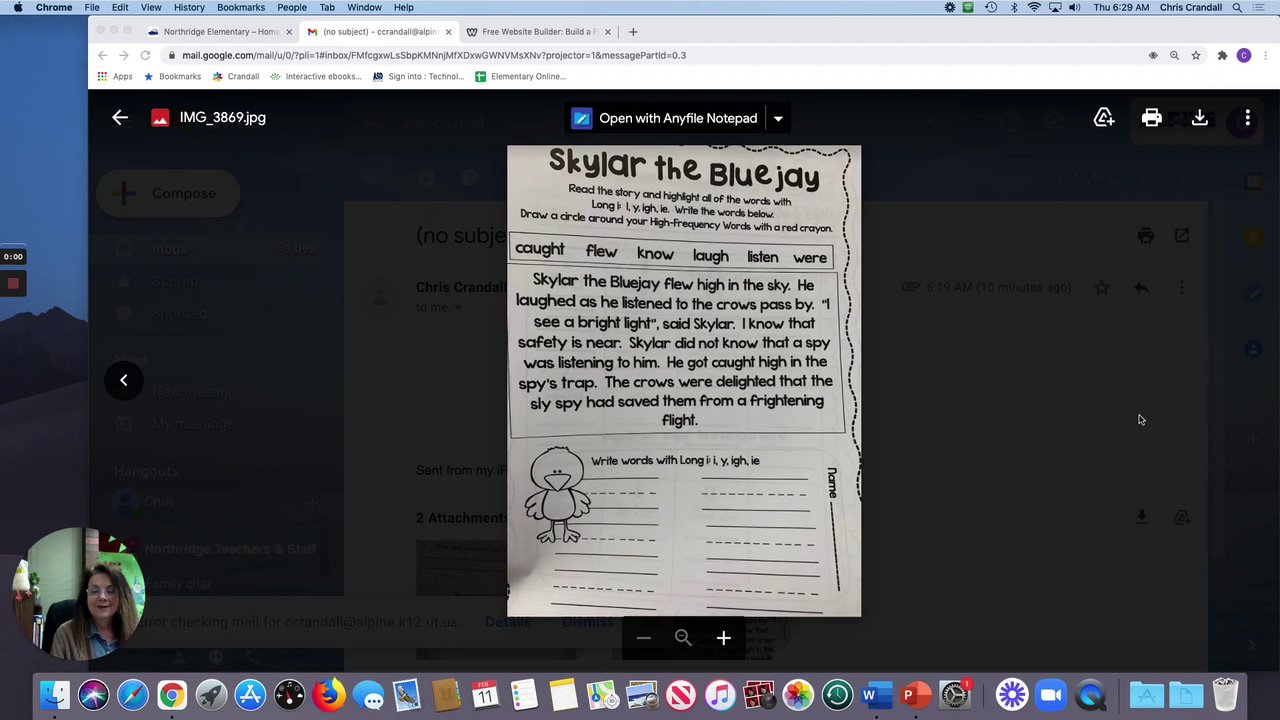 Chrome File Edit View History Bookmarks People Tab Window Help Thu 6:29 AM Chris Crandall
Northridge Elementary – Home (no subject) - ccrandall@alpine Free Website Builder: Build a F
mail.google.com/mail/u/0/?pli=1#inbox/FMfcgxwLsSbpKMNnjMfXDxwGWNVMsXNv?projector=1&messagePartId=0.3
Apps Bookmarks Crandall Interactive ebooks... Sign into : Technol... Elementary Online...
IMG_3869.jpg Open with Anyfile Notepad
Compose
Inbox 3,098
Starred
Snoozed
Meet
New meeting
My meetings
Hangouts
Chris
Northridge Teachers & Staff
Family chat
(no subje
Chris Crandall 6:19 AM (10 minutes ago)
to me
Sent from my iP
2 Attachments
Error checking mail for ccrandall@alpine.k12.ut.us. Details Dismiss
0:00
Skylar the Bluejay
Read the story and highlight all of the words with
Long i: I, y, igh, ie. Write the words below.
Draw a circle around your High-Frequency Words with a red crayon.
caught flew know laugh listen were
Skylar the Bluejay flew high in the sky. He
laughed as he listened to the crows pass by. "I
see a bright light", said Skylar. I know that
safety is near. Skylar did not know that a spy
was listening to him. He got caught high in the
spy's trap. The crows were delighted that the
sly spy had saved them from a frightening
flight.
Write words with Long i: i, y, igh, ie
Name
FEB
11
1